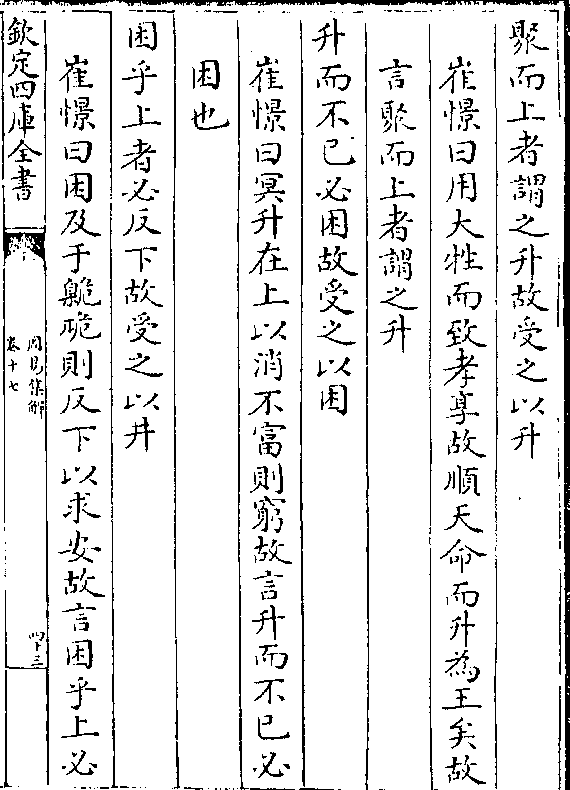 聚而上者謂之升故受之以升
崔憬曰用大牲而致孝享故順天命而升為王矣故
言聚而上者謂之升
升而不已必困故受之以困
崔憬曰冥升在上以消不富則窮故言升而不已必
困也
困乎上者必反下故受之以井
崔憬曰困及于臲卼則反下以求安故言困乎上必
欽定四庫全書
周易集解
卷十七
四十三